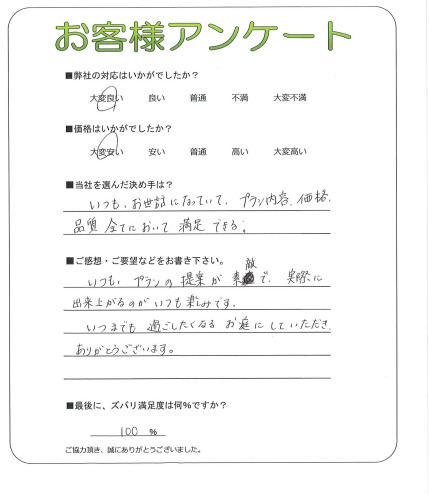 お客様アンケート
■弊社の対応はいかがでしたか?
大変良い 良い 普通 不満 大変不満
■価格はいかがでしたか?
大変安い 安い 普通 高い 大変高い
■当社を選んだ決め手は?
いつも、お世話になっていて、プラン内容、価格、
品質 全てにおいて 満足 できる。
■ご感想・ご要望などをお書き下さい。
いつも、プランの 提案が 素敵で、実際に
出来上がるのが いつも 楽しみです。
いつまでも 過ごしたくなる お庭に していただき
ありがとうございます。
■最後に、ズバリ満足度は何%ですか?
100 %
ご協力頂き、誠にありがとうございました。